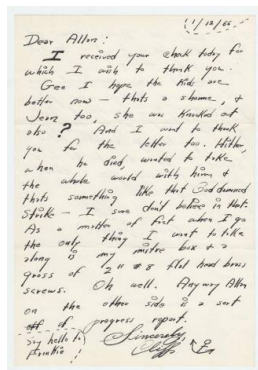 (1/12/66)
Dear Allan:
I received your check today for
which I wish to thank you.
Gee I hope the kids are
better now - thats a shame, &
Jenz too, she was knocked out
also? And I want to thank
you for the letter too. Hitler,
when he died, wanted to take
the whole world with him &
thats something like that God damned
strike - I sure don't believe in that.
As a matter of fact when I go
the only thing I want to take
along is my mitre box & a
gross of 2" #8 flat head brass
screws. Oh well. Anyway Allan
on the other side is a sort
of progress report.
Say hello to Sincerely
Frankie Cliff